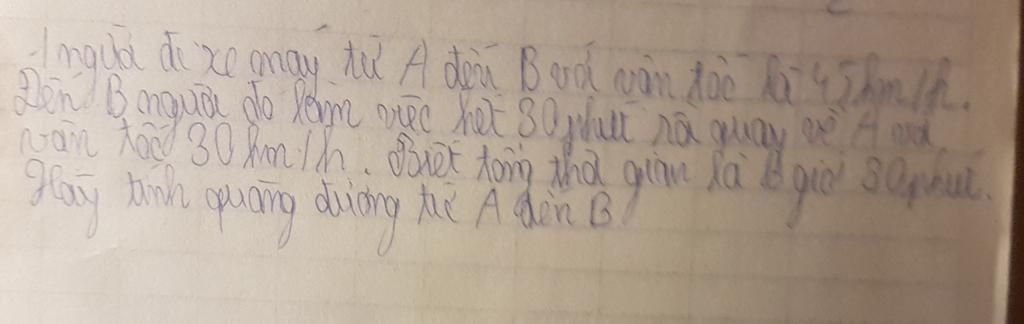 1 người đi xe máy từ A đến B với vân tốc là 45km/h.
Đến B người đó làm việc hết 30 phút rồi quay về A với
vân tốc 30 km/h. Biết tổng thời gian là giờ 30 phút.
Hãy tính quãng đường từ A đến B